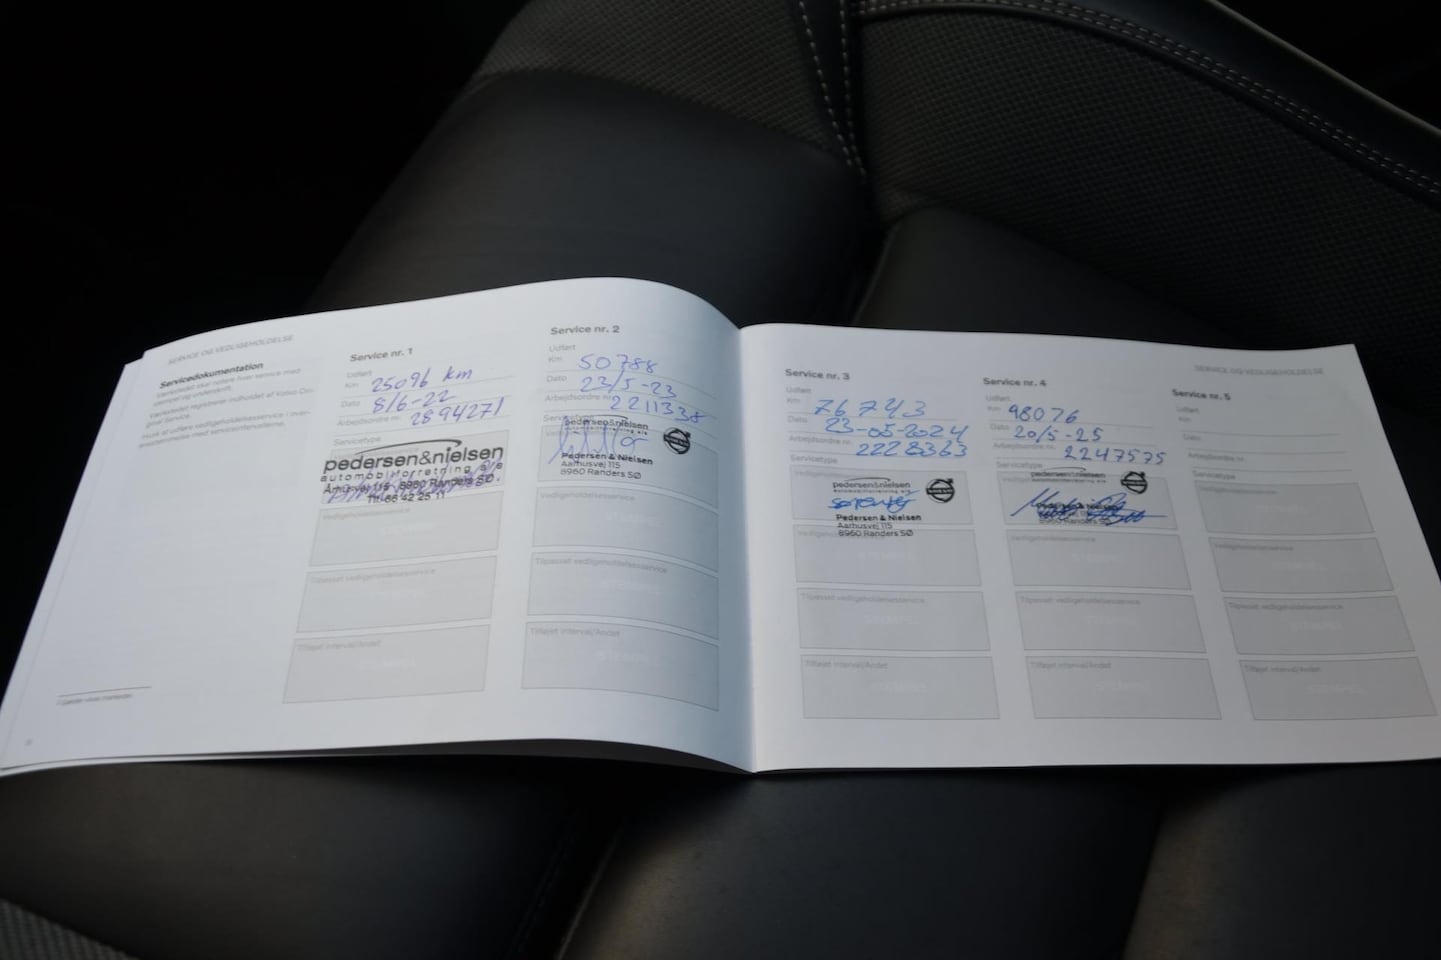 SERVICE OG VEDLIGEHOLDELSE
Servicedokumentation
Værkstedet skal notere hver service med
stempel og underskrift.
Service nr. 1
Udført
Km 25096 km
Dato 8/6-22
Arbejdsordre nr. 2894271
Servicetype
pedersen&nielsen
automobilforretning a/s
Århusvej 115 8960 Randers SØ.
Tlf. 86 42 25 11
Vedligeholdelsesservice
Tilpasset vedligeholdelsesservice
Tilføjet interval/Andet
Service nr. 2
Udført
Km 50788
Dato 23/5-23
Arbejdsordre nr. 2211338
Servicetype
pedersen&nielsen
automobilforretning a/s
Pedersen & Nielsen
Aarhusvej 115
8960 Randers SØ
Vedligeholdelsesservice
Tilpasset vedligeholdelsesservice
Tilføjet interval/Andet
SERVICE OG VEDLIGEHOLDELSE
Service nr. 3
Udført
Km 76743
Dato 23-05-2024
Arbejdsordre nr. 2228363
Servicetype
pedersen&nielsen
automobilforretning a/s
Pedersen & Nielsen
Aarhusvej 115
8960 Randers SØ
Tilpasset vedligeholdelsesservice
Tilføjet interval/Andet
Service nr. 4
Udført
Km 98076
Dato 20/5-25
Arbejdsordre nr. 2247575
Servicetype
pedersen&nielsen
8960 Randers SØ
Vedligeholdelsesservice
Tilpasset vedligeholdelsesservice
Tilføjet interval/Andet
Service nr. 5
Udført
Km
Dato
Arbejdsordre nr.
Servicetype
Vedligeholdelsesservice
Tilpasset vedligeholdelsesservice
Tilføjet interval/Andet